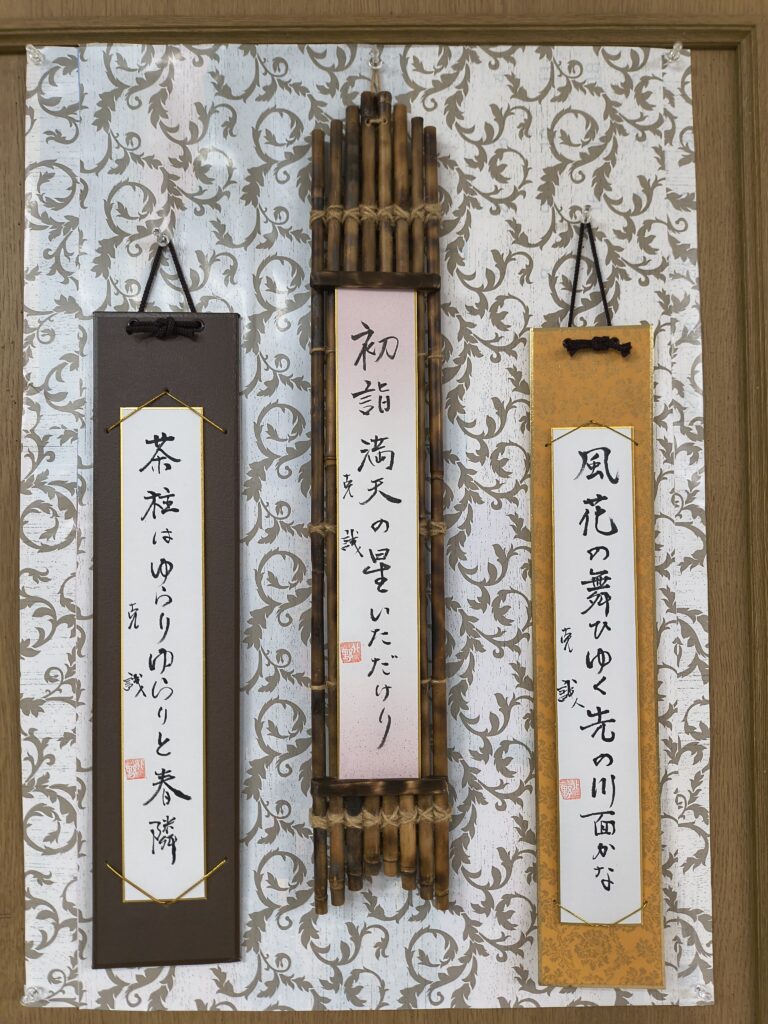 風花の舞ひゆく先の川面かな
克誠
初詣満天の星いただけり
克誠
茶柱はゆらりゆらりと春隣
克誠